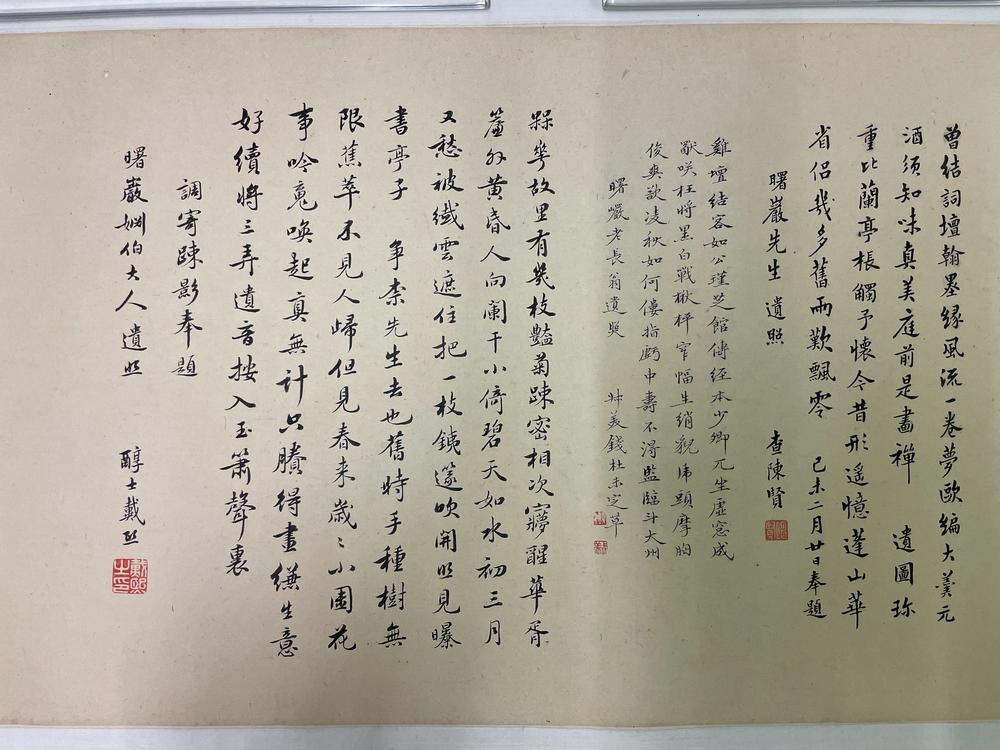 曾結詞壇翰墨緣風流一卷夢歐編大羹元
酒須知味真美庭前是畫禪 遺圖珎
重比蘭亭棖觸予懷今昔形遙憶蓬山華
省侣幾多舊雨歎飄零 己未二月廿日奉題
曙巖先生 遺照 查陳賢
雞壇結客如公瑾芝館傳經本少卿兀坐虛窓成
歗咲枉將黑白戰楸枰 窄幅生綃貌虎頭摩胸
俊爽欲凌秋如何僂指庚申壽不得監臨斗大州
曙巖老長翁遺照 叔美錢杜未定草
槑華故里有幾枝豔菊踈密相次寱醒華胥
簾外黃昏人向闌干小倚碧天如水初三月
又愁被纖雲遮住把一枝銕篴吹開照見曝
書亭子 争柰先生去也舊時手種樹無
限蕉萃不見人歸但見春来歲〻小園花
事吟䰟喚起真無計只賸得畫縑生意
好續將三弄遺音按入玉簫聲裏
調寄踈影奉題
曙巖姻伯大人遺照 醇士戴熙
戴熙之印